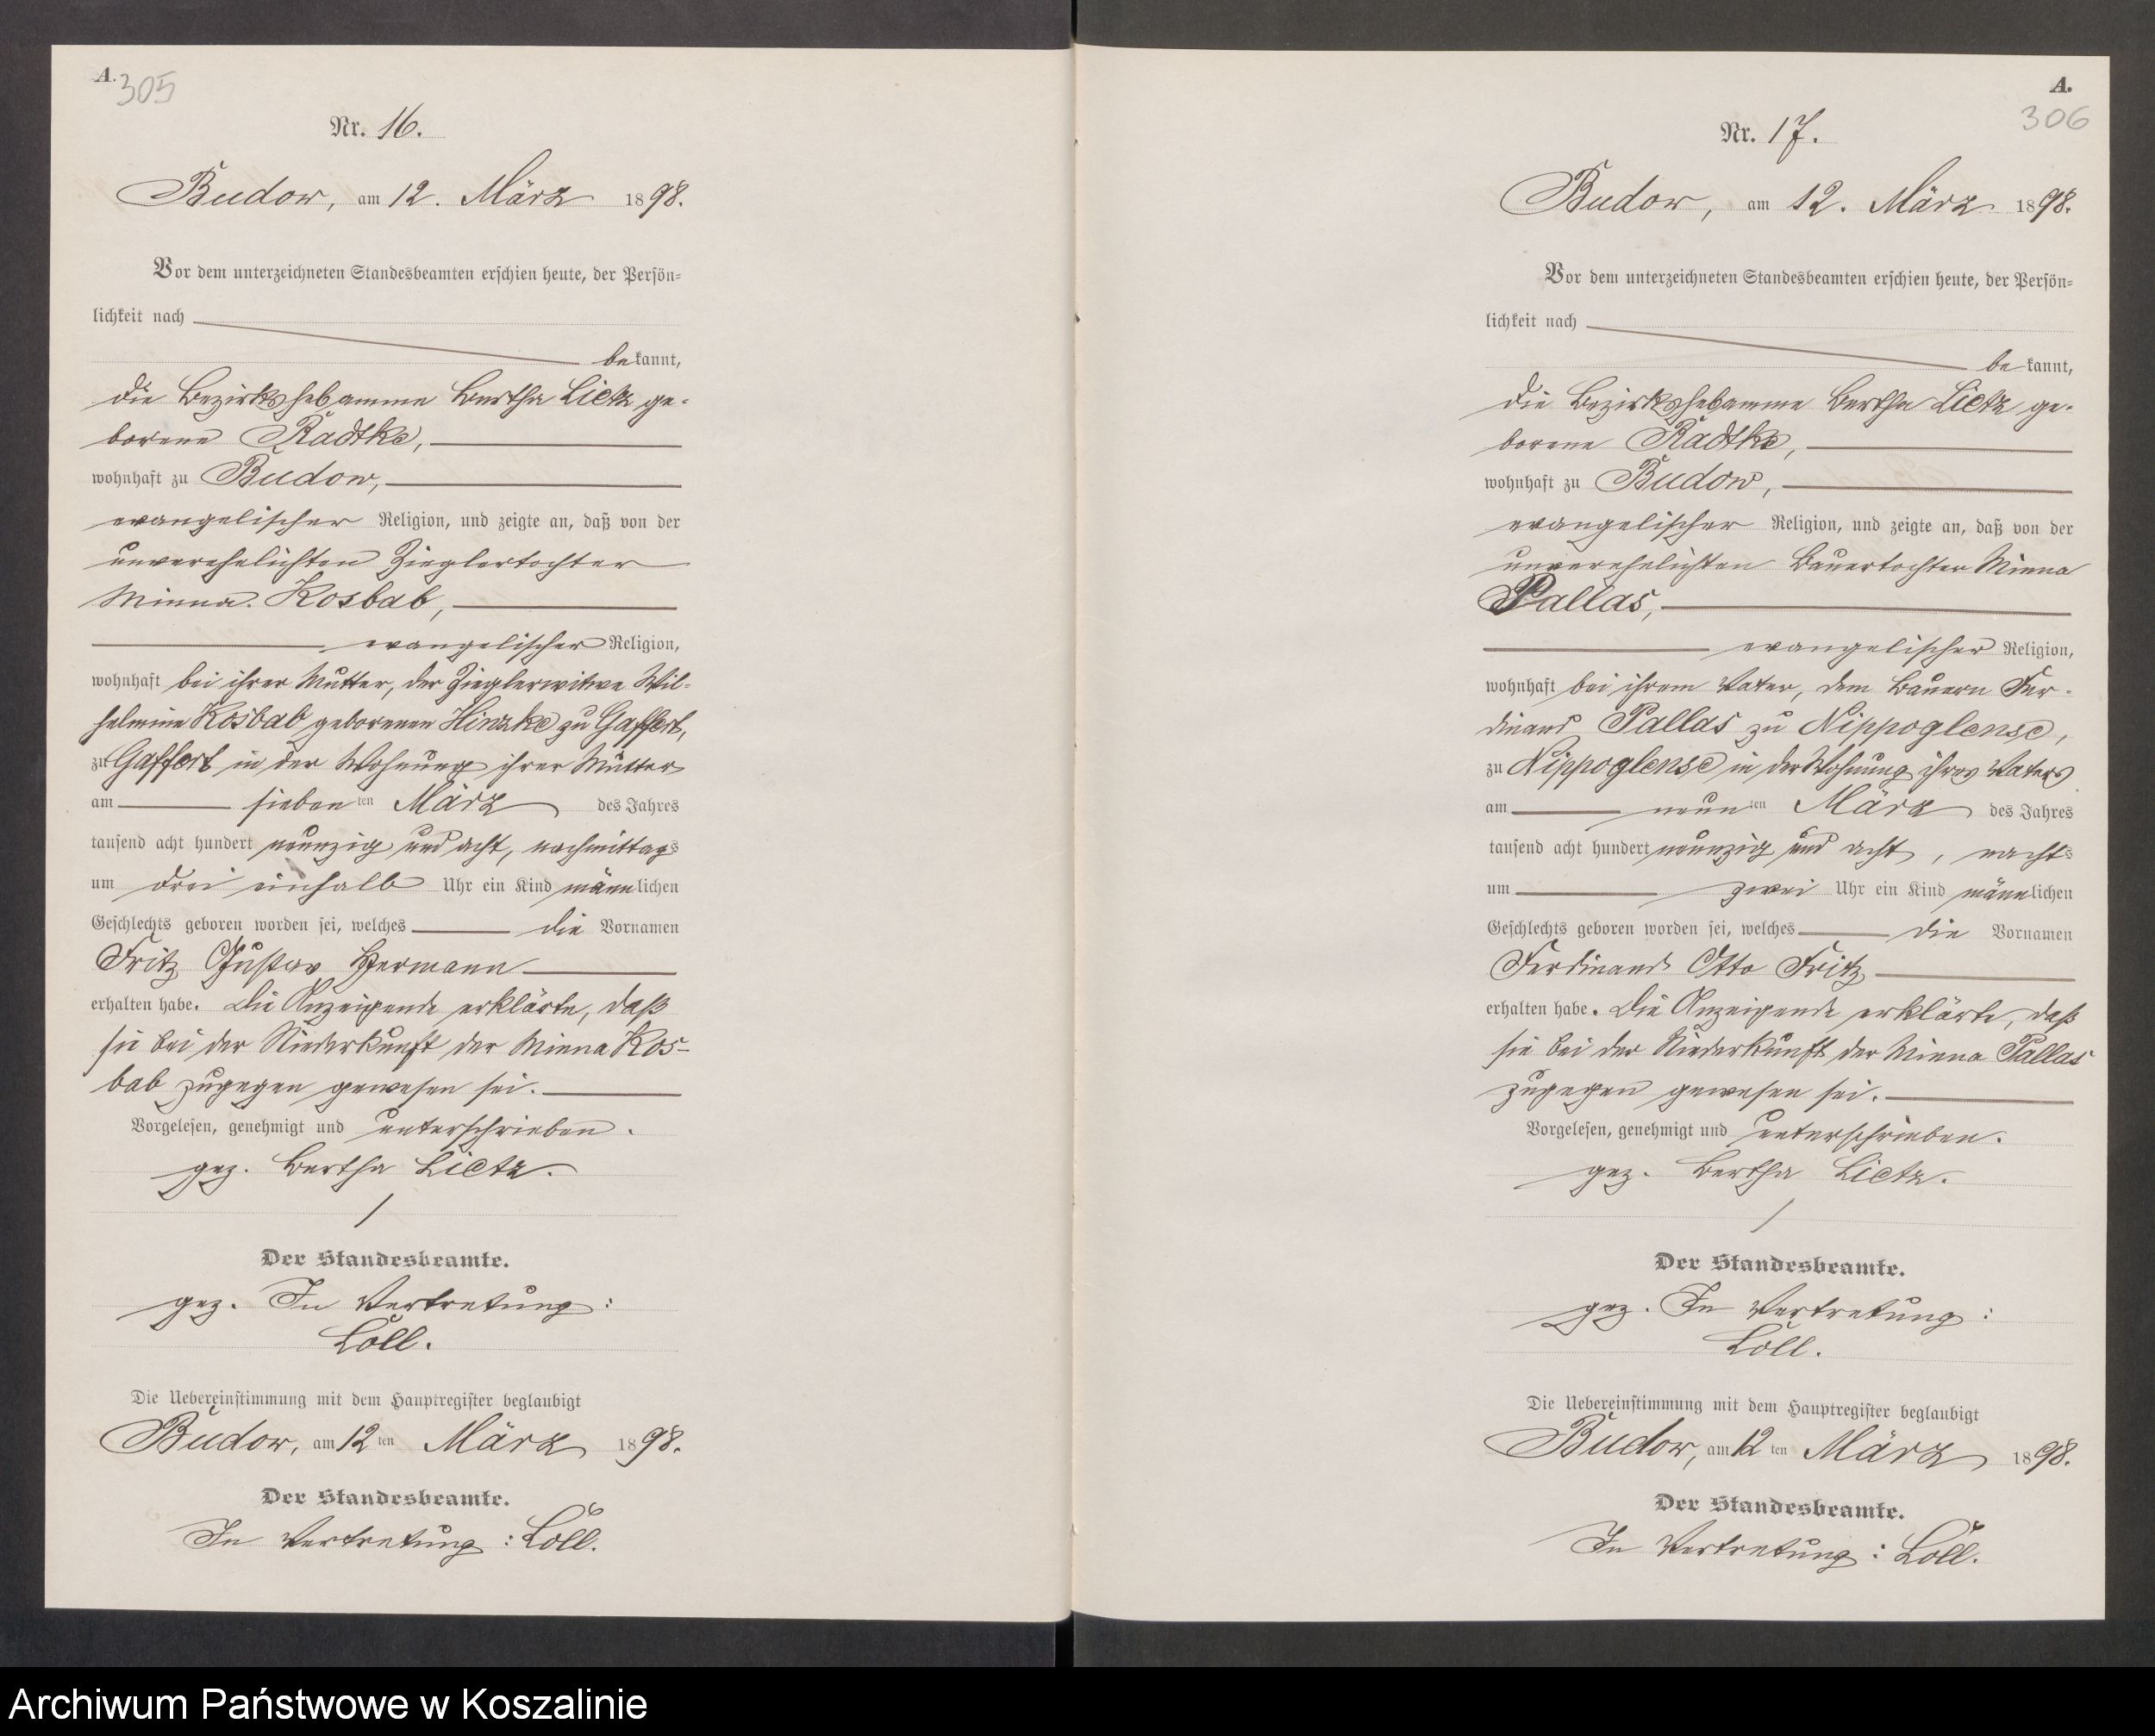 A.
305
Nr. 16.
Budow, am 12. März 1898.
Vor dem unterzeichneten Standesbeamten erschien heute, der Persön-
lichkeit nach
bekannt,
die Bezirkshebamme Bertha Lietz ge-
borene Radtke,
wohnhaft zu Budow,
evangelischer Religion, und zeigte an, daß von der
unverehelichten Zieglertochter
Minna Kosbab,
evangelischer Religion,
wohnhaft bei ihrer Mutter, der Zieglerwitwe Wil-
helmine Kosbab geborenen Hinzke zu Gaffert,
zu Gaffert in der Wohnung ihrer Mutter
am siebenten März des Jahres
tausend acht hundert neunzig und acht, nachmittags
um drei einhalb Uhr ein Kind männlichen
Geschlechts geboren worden sei, welches die Vornamen
Fritz Gustav Hermann
erhalten habe. Die Anzeigende erklärte, daß
sie bei der Niederkunft der Minna Kos-
bab zugegen gewesen sei.
Vorgelesen, genehmigt und unterschrieben.
gez. Bertha Lietz.
Der Standesbeamte.
gez. In Vertretung:
Löll.
Die Uebereinstimmung mit dem Hauptregister beglaubigt
Budow, am 12ten März 1898.
Der Standesbeamte.
In Vertretung: Löll.
A.
306
Nr. 17.
Budow, am 12. März 1898.
Vor dem unterzeichneten Standesbeamten erschien heute, der Persön-
lichkeit nach
bekannt,
die Bezirkshebamme Bertha Lietz ge-
borene Radtke,
wohnhaft zu Budow,
evangelischer Religion, und zeigte an, daß von der
unverehelichten Bauertochter Minna
Pallas,
evangelischer Religion,
wohnhaft bei ihrem Vater, dem Bauern Fer-
dinand Pallas zu Nippoglense,
zu Nippoglense in der Wohnung ihres Vaters
am neunten März des Jahres
tausend acht hundert neunzig und acht, nachts
um zwei Uhr ein Kind männlichen
Geschlechts geboren worden sei, welches die Vornamen
Ferdinand Otto Fritz
erhalten habe. Die Anzeigende erklärte, daß
sie bei der Niederkunft der Minna Pallas
zugegen gewesen sei.
Vorgelesen, genehmigt und unterschrieben.
gez. Bertha Lietz.
Der Standesbeamte.
gez. In Vertretung:
Löll.
Die Uebereinstimmung mit dem Hauptregister beglaubigt
Budow, am 12ten März 1898.
Der Standesbeamte.
In Vertretung: Löll.
Archiwum Państwowe w Koszalinie